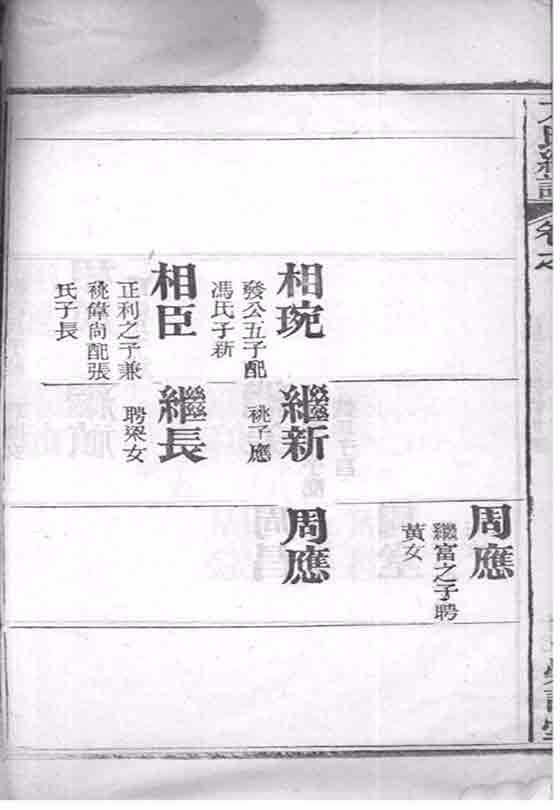 周應
繼富之子聘
黃女
相琬
發公五子配
馮氏子新
繼新
祧子應
周應
相臣
正利之子兼
祧偉尚配張
氏子長
繼長
聘梁女